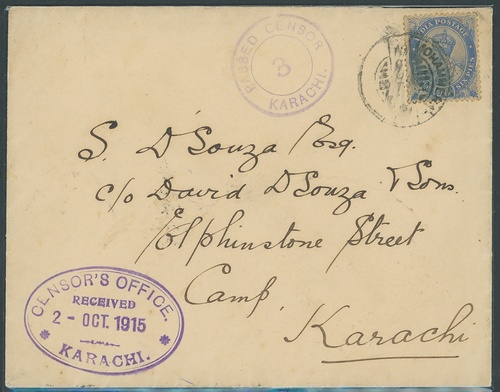 PASSED CENSOR
3
KARACHI.
INDIA POSTAGE
S. D'Souza Esq.
c/o David D'Souza & Sons.
Elphinstone Street
Camp,
Karachi
CENSOR'S OFFICE.
RECEIVED
2 - OCT. 1915
KARACHI.